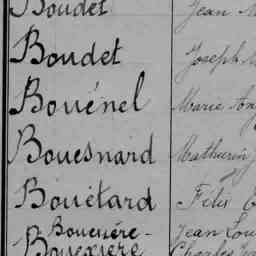 Boudet Jean
Boudet Joseph
Bouénel Marie
Bouesnard Mathurin
Bouétard Félix
Bouexière Jean Lou
Charles